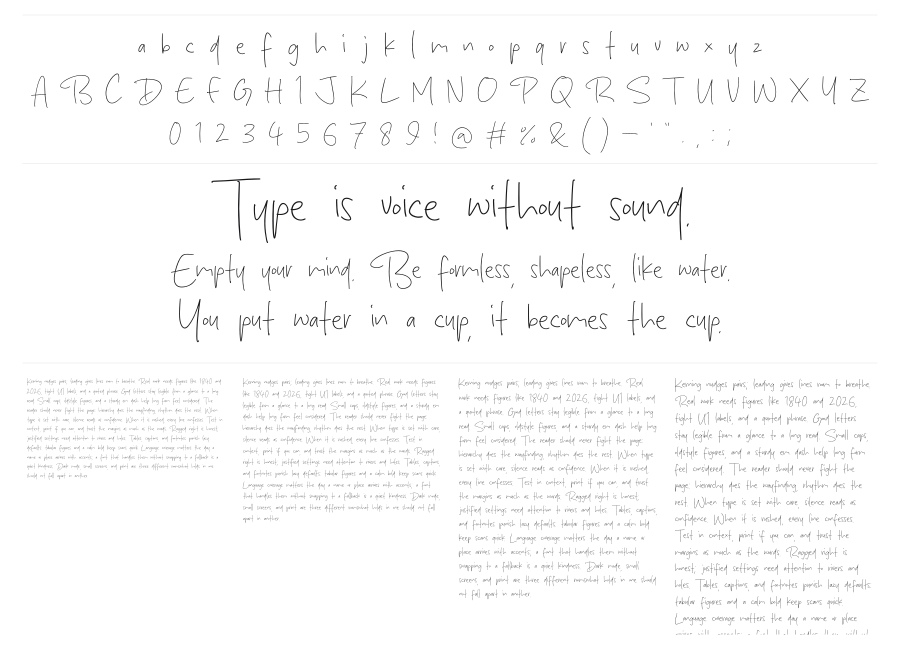 a b c d e f g h i j k l m n o p q r s t u v w x y z
A B C D E F G H I J K L M N O P Q R S T U V W X Y Z
0 1 2 3 4 5 6 7 8 9 ! @ # % & ( ) – ' " . , : ;
Type is voice without sound.
Empty your mind. Be formless, shapeless, like water.
You put water in a cup, it becomes the cup.
Kerning nudges pairs, leading gives lines room to breathe. Real work needs figures like 1840 and
2026, tight UI labels, and a quoted phrase. Good letters stay legible from a glance to a long
read. Small caps, oldstyle figures, and a sturdy em dash help long form feel considered. The
reader should never fight the page, hierarchy does the wayfinding, rhythm does the rest. When
type is set with care, silence reads as confidence. When it is rushed, every line confesses. Test in
context, print if you can, and trust the margins as much as the words. Ragged right is honest,
justified settings need attention to rivers and holes. Tables, captions, and footnotes punish lazy
defaults, tabular figures and a calm bold keep scans quick. Language coverage matters the day a
name or place arrives with accents, a font that handles them without snapping to a fallback is a
quiet kindness. Dark mode, small screens, and print are three different rooms,
should not fall apart in another.
Kerning nudges pairs, leading gives lines room to breathe. Real work needs figures
like 1840 and 2026, tight UI labels, and a quoted phrase. Good letters stay
legible from a glance to a long read. Small caps, oldstyle figures, and a sturdy em
dash help long form feel considered. The reader should never fight the page,
hierarchy does the wayfinding, rhythm does the rest. When type is set with care,
silence reads as confidence. When it is rushed, every line confesses. Test in
context, print if you can, and trust the margins as much as the words. Ragged
right is honest, justified settings need attention to rivers and holes. Tables, captions,
and footnotes punish lazy defaults, tabular figures and a calm bold keep scans quick.
Language coverage matters the day a name or place arrives with accents, a font
that handles them without snapping to a fallback is a quiet kindness. Dark mode,
small screens, and print are three different should not fall
apart in another.
Kerning nudges pairs, leading gives lines room to breathe. Real
work needs figures like 1840 and 2026, tight UI labels, and
a quoted phrase. Good letters stay legible from a glance to a long
read. Small caps, oldstyle figures, and a sturdy em dash help long
form feel considered. The reader should never fight the page,
hierarchy does the wayfinding, rhythm does the rest. When type
is set with care, silence reads as confidence. When it is rushed,
every line confesses. Test in context, print if you can, and trust
the margins as much as the words. Ragged right is honest,
justified settings need attention to rivers and holes. Tables, captions,
and footnotes punish lazy defaults, tabular figures and a calm bold
keep scans quick. Language coverage matters the day a name or
place arrives with accents, a font that handles them without
snapping to a fallback is a quiet kindness. Dark mode, small
screens, and print are three different should
not fall apart in another.
Kerning nudges pairs, leading gives lines room to breathe.
Real work needs figures like 1840 and 2026,
tight UI labels, and a quoted phrase. Good letters
stay legible from a glance to a long read. Small caps,
oldstyle figures, and a sturdy em dash help long form
feel considered. The reader should never fight the
page, hierarchy does the wayfinding, rhythm does the
rest. When type is set with care, silence reads as
confidence. When it is rushed, every line confesses.
Test in context, print if you can, and trust the
margins as much as the words. Ragged right is
honest, justified settings need attention to rivers and
holes. Tables, captions, and footnotes punish lazy defaults,
tabular figures and a calm bold keep scans quick.
Language coverage matters the day a name or place